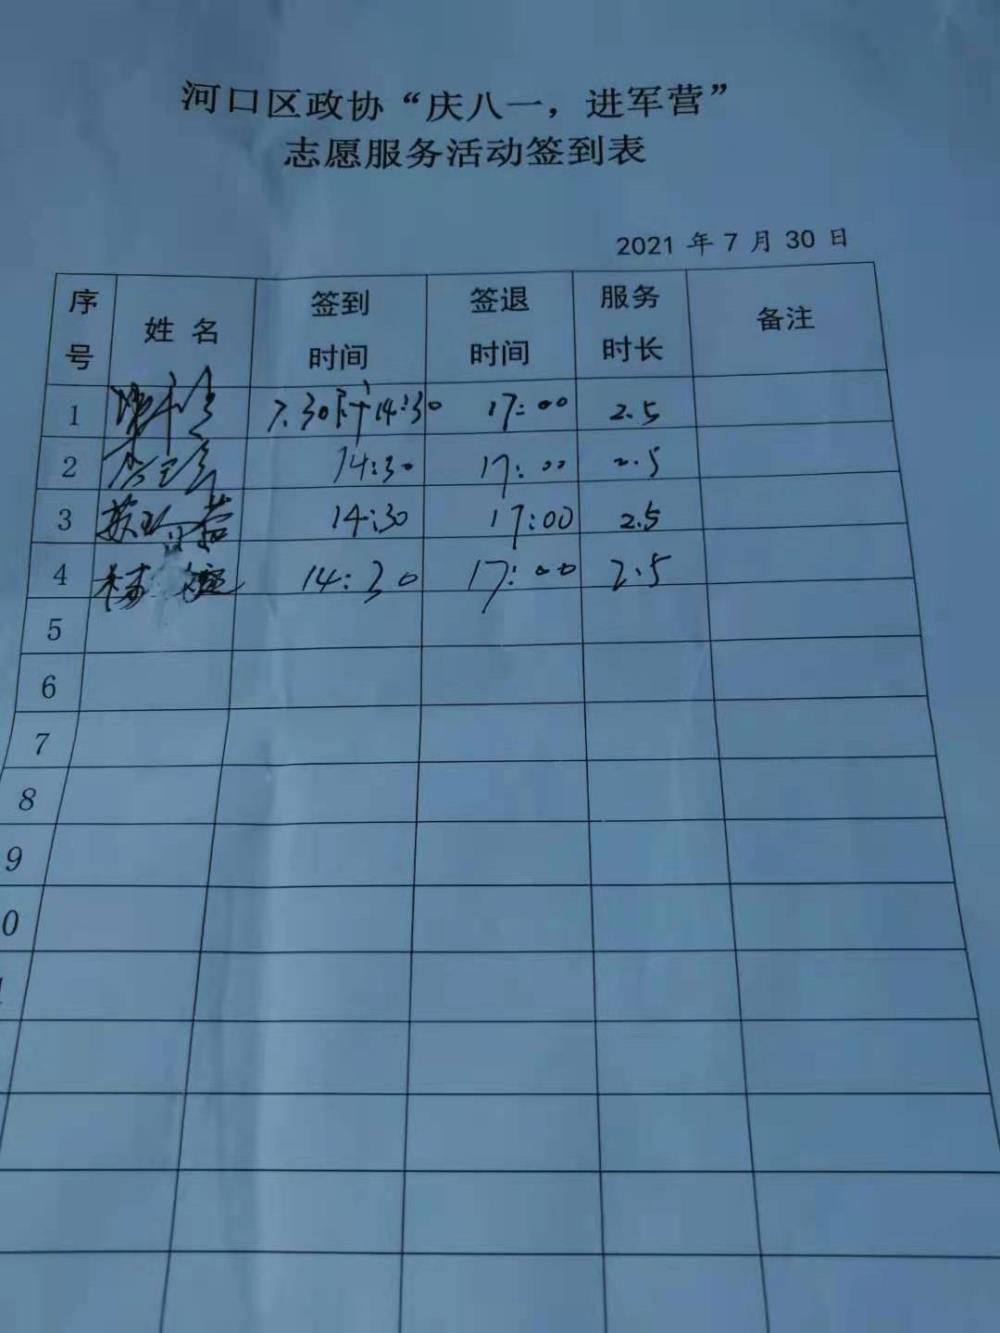 河口区政协“庆八一，进军营”
志愿服务活动签到表
2021 年 7 月 30 日
序号 姓 名 签到时间 签退时间 服务时长 备注
1 7.30下午14:30 17:00 2.5
2 14:30 17:00 2.5
3 14:30 17:00 2.5
4 14:30 17:00 2.5
5
6
7
8
9
0